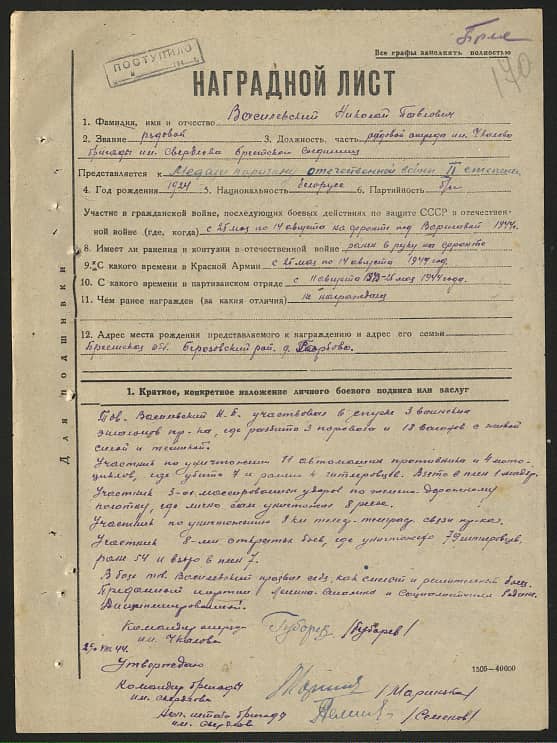 Брест
Все графы заполнять полностью
ПОСТУПИЛО
170
НАГРАДНОЙ ЛИСТ
1. Фамилия, имя и отчество Василевский Николай Павлович
2. Звание рядовой 3. Должность, часть рядовой отряда им. Чкалова
бригады им. Свердлова Брестского Соединения
Представляется к Медали партизану отечественной войны II степени
4. Год рождения 1924 5. Национальность белорус 6. Партийность б/п
Участие в гражданской войне, последующих боевых действиях по защите СССР и отечествен-
ной войне (где, когда) с 25 мая по 14 августа на фронте под Варшавой 1944г.
8. Имеет ли ранения и контузии в отечественной войне ранен в руку на фронте
9. С какого времени в Красной Армии с 25 мая по 14 августа 1944 год
10. С какого времени в партизанском отряде с 11 августа 1943-25 мая 1944 года.
11. Чем ранее награжден (за какия отличия) не награждался
12. Адрес места рождения представляемого к награждению и адрес его семьи
Брестская обл. Березовский рай. д.
Для подшивки
1. Краткое, конкретное изложение личного боевого подвига или заслуг
Тов. Василевский Н.П. участвовал в спуске 3 воинских
эшелонов пр-ка, где разбито 3 паровоза и 18 вагонов с живой
силой и техникой.
Участник по уничтожению 11 автомашин противника и 4 мото-
циклов, где убито 7 и ранено 4 гитлеровцев. Взято в плен 1 майор.
Участник 3-ох массированных ударов по железно-дорожному
полотну, где лично сам уничтожил 8 рельс.
Участник по уничтожению 8 км телеф.-телегр. связи пр-ка.
Участник 8-ми открытых боев, где уничтожено 79 гитлеровцев,
ранено 54 и взято в плен 7.
В боях тов. Василевский проявил себя, как смелый и решительный боец.
Преданный партии Ленина-Сталина и Социалистической Родине.
Дисциплинированный.
Командир отряда
им. Чкалова Губарев /Губарев/
44.
Утверждаю
1505-40000
Командир бригады
им. Свердлова
Нач. штаба бригады /Семенов/
им. Свердлова